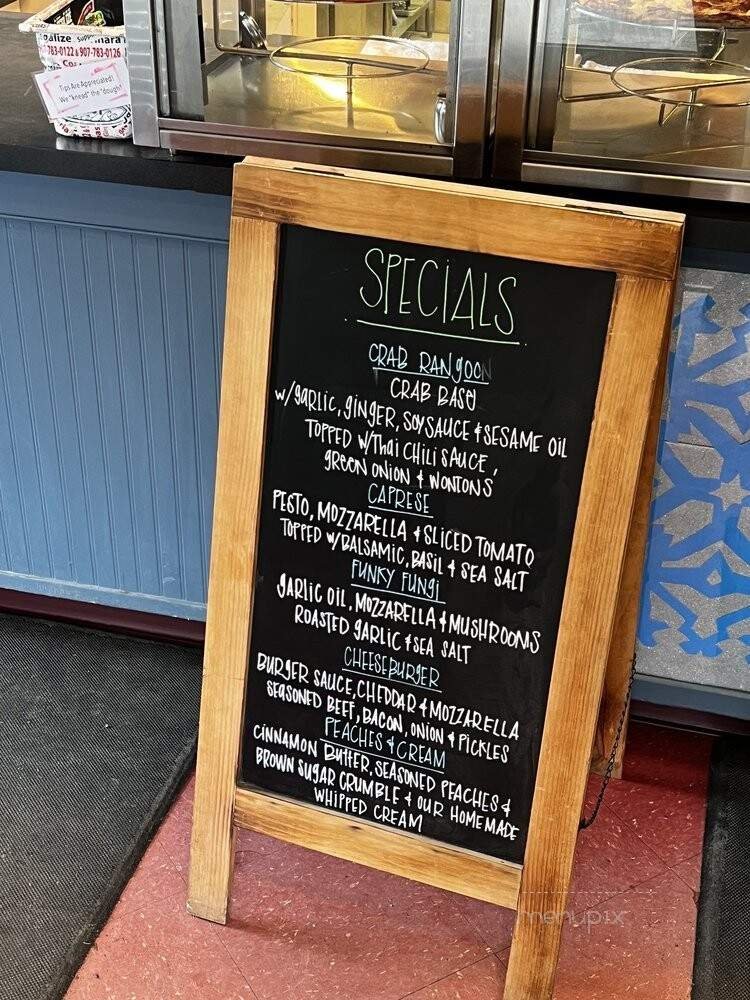 783-0122 & 907-783-0126
Tips Are Appreciated!
We "knead" the "dough"!
SPECIALS
CRAB RANGOON
CRAB BASE
w/GARLIC, GINGER, SOY SAUCE & SESAME OIL
TOPPED w/THAI CHILI SAUCE,
GREEN ONION & WONTONS
CAPRESE
PESTO, MOZZARELLA & SLICED TOMATO
TOPPED w/BALSAMIC, BASIL & SEA SALT
FUNKY FUNGI
GARLIC OIL, MOZZARELLA & MUSHROOMS
ROASTED GARLIC & SEA SALT
CHEESEBURGER
BURGER SAUCE, CHEDDAR & MOZZARELLA
SEASONED BEEF, BACON, ONION & PICKLES
PEACHES & CREAM
CINNAMON BUTTER, SEASONED PEACHES &
BROWN SUGAR CRUMBLE & OUR HOMEMADE
WHIPPED CREAM
menupix